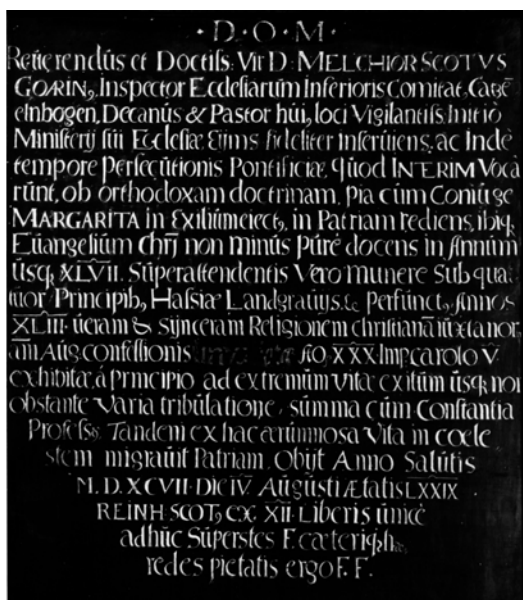 · D · O · M ·
Reuerendus et Doctiss: Vir D. MELCHIOR SCOTVS
GOARINꝰ, Inspector Ecclesiarum Inferioris Comitat, Catzē
elnbogen, Decanus & Pastor hui, loci Vigilantiss: Initiò
Ministerij sui Ecclesiæ fideliter inseruiens, ac Inde
tempore Persecutionis Pontificiæ, quod INTERIM Voca
runt, ob orthodoxam doctrinam, pia cum Coniuge
MARGARITA in Exilium eiectꝰ, in Patriam rediens, ibiqꝫ
Euangelium Chrj̄ non minus Pure docens in Annum
usqꝫ XLVII. Superattendentis Vero munere Sub qua
tuor Principibꝰ, Hassiæ Landgrauijs, &c perfunctꝰ, Annos
XLIII. ueram & synceram Religionem christianā iuxta nor
am Aug. confessionis XXX. Imp. carolo V
exhibitæ, á principio ad extremum vitæ exitum usqꝫ non
obstante Varia tribulatione, summa cum Constantia
Professꝰ. Tandem ex hac ærumnosa Vita in coele
stem migrauit Patriam. Obijt Anno Salutis
M. D. XCVII. Die IV. Augusti Ætatis LXXIX
REINH SCOTꝰ, ex XII. Liberis unicè
adhuc Superstes F. cæteriqꝫ hæ,
redes pietatis ergo F. F.